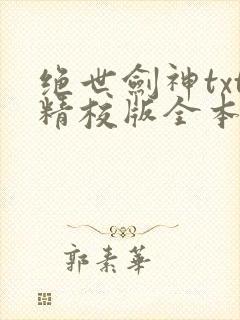 绝世劍神txt
精校版全本
郭素華